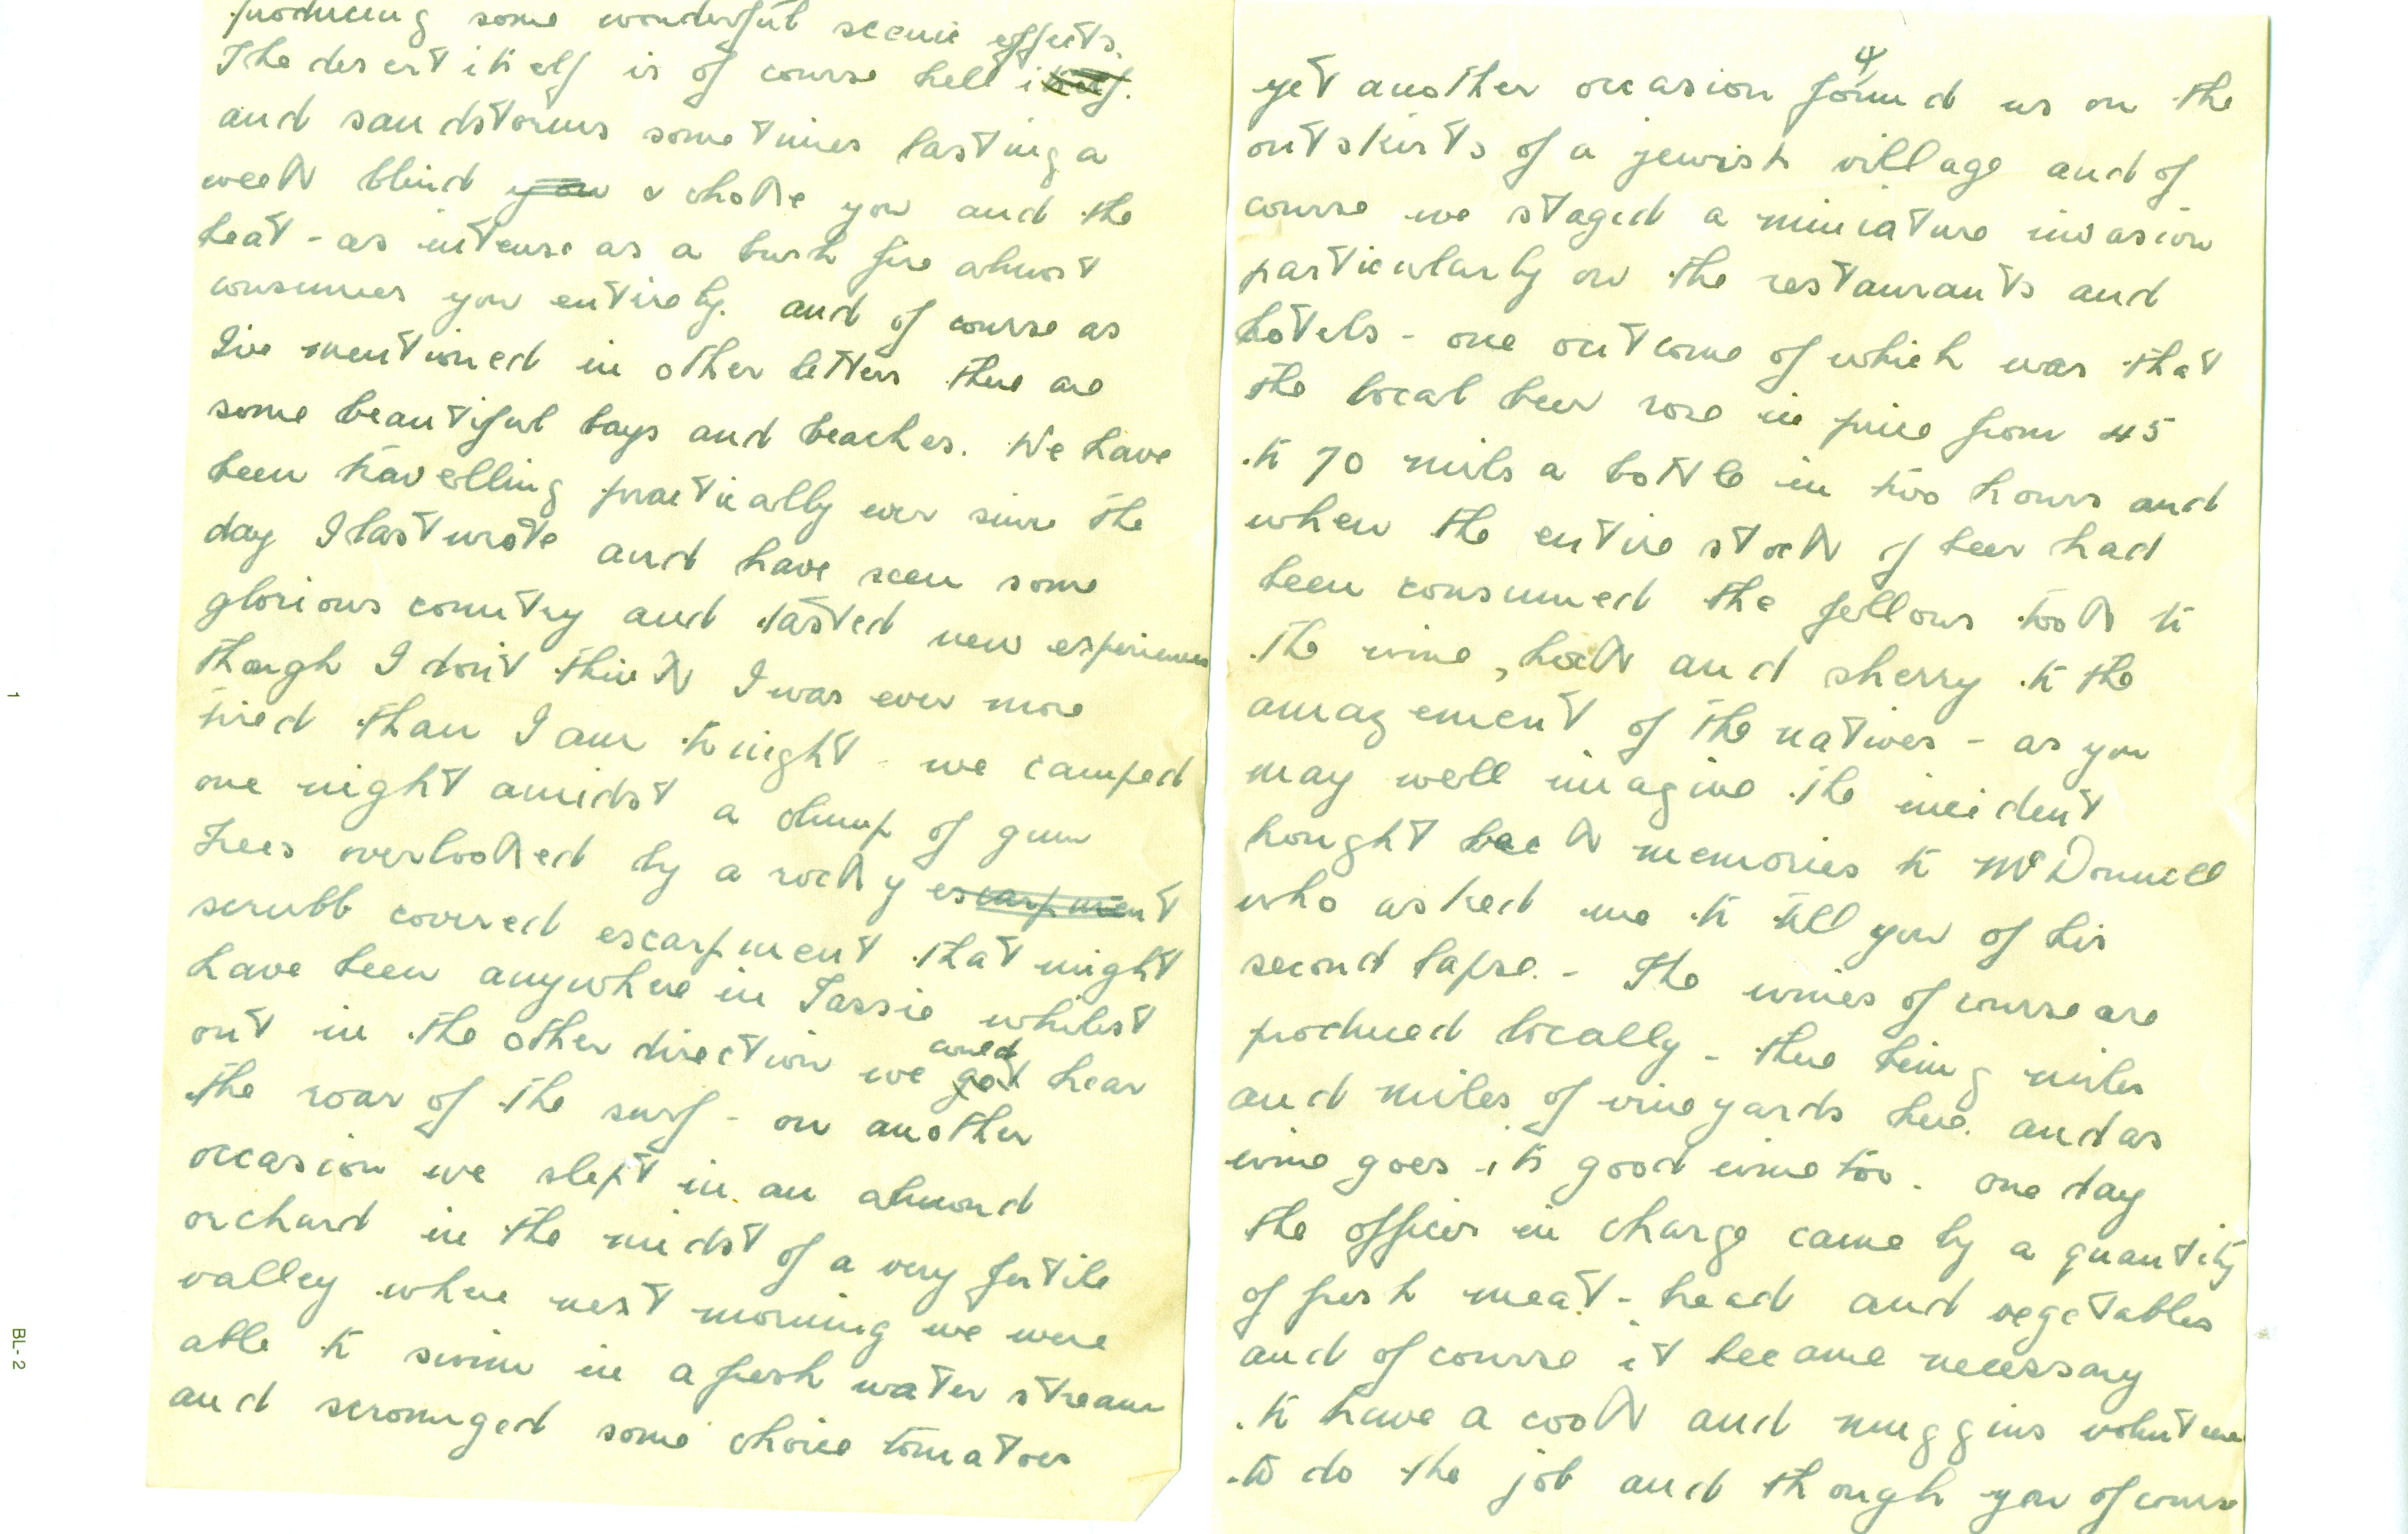 producing some wonderful scenic effects.
The desert itself is of course hell itself.
and sandstorms sometimes lasting a
week blind you & choke you and the
heat - as intense as a bush fire almost
consumes you entirely. and of course as
I've mentioned in other letters there are
some beautiful bays and beaches. We have
been travelling practically ever since the
day I last wrote and have seen some
glorious country and tasted new experiences
though I don't think I was ever more
tired than I am tonight - we camped
one night amidst a clump of gum
trees overlooked by a rocky escarpment
scrubb covered escarpment that might
have been anywhere in Tassie whilst
out in the other direction we got could hear
the roar of the surf - on another
occasion we slept in an almond
orchard in the midst of a very fertile
valley where next morning we were
able to swim in a fresh water stream
and scrounged some choice tomatoes
4
yet another occasion found us on the
outskirts of a jewish village and of
course we staged a miniature invasion
particularly on the restaurants and
hotels - one outcome of which was that
the local beer rose in price from 45
to 70 mils a bottle in two hours and
when the entire stock of beer had
been consumed the fellows took to
the wine, hock and sherry to the
amazement of the natives - as you
may well imagine the incident
bought back memories to McDonnell
who asked me to tell you of his
second lapse. - The wines of course are
produced locally - there being miles
and miles of vineyards here. and as
wine goes its good wine too. one day
the officer in charge came by a quantity
of fresh meat - head and vegetables
and of course it became necessary
to have a cook and muggins volunteer
to do the job and though you of course
1
BL-2